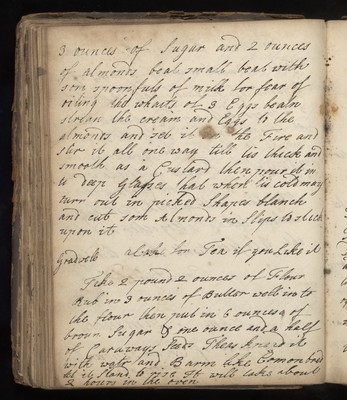 3 ounces of Sugar and 2 ounces
of almonds beat small beat with
som spoonfuls of milk for fear of
oiling the whaits of 3 Eggs beaten
the cream and Eggs to the
almonds and set it on the Fire and
stir it all one way till tis thick and
smooth as a Custard then pour it in
to deep Glasses that when tis cold may
turn out in picked Shapes blanch
and cut som Almonds in Slips to stick
upon it
a Cake for Tea if you Like it
Take 2 pound 2 ounces of Flour
Rub in 3 ounces of Butter well in to
the flour then put in 6 ounces of
brown Sugar & one ounce and a half
of Caraways Seeds Then knead it
with water and Barm like Common bread
let it stand to rise It will take about
2 hours in the oven